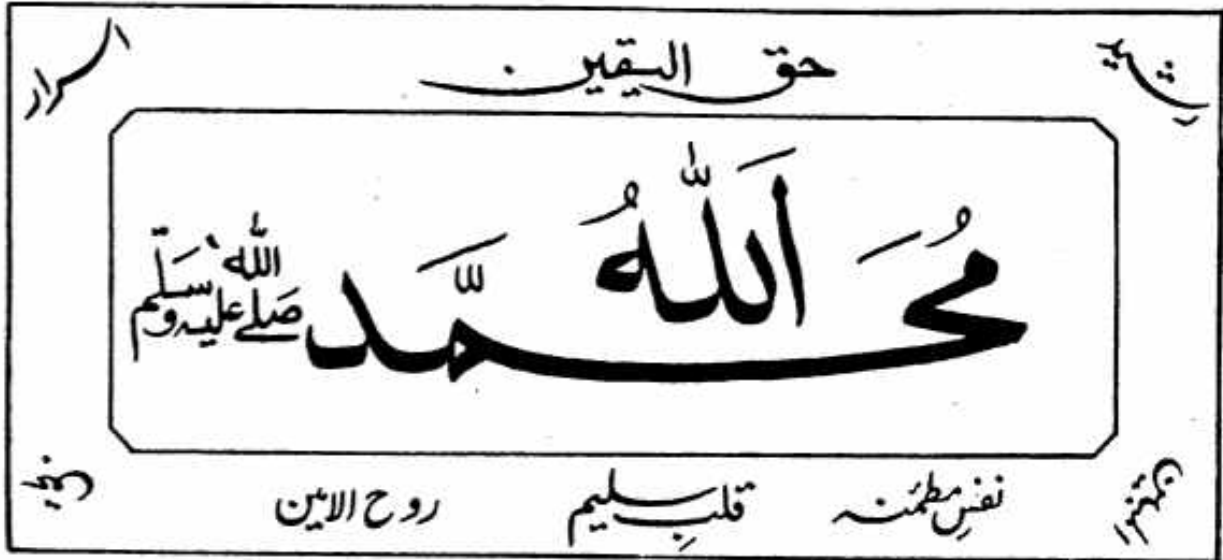 حق الیقین
اسرار
اَللّٰهُ
مُحَمَّد صَلے اللّٰه علیہ وسَلَّم
نفسِ مطمئنہ قلبِ سلیم روح الامین